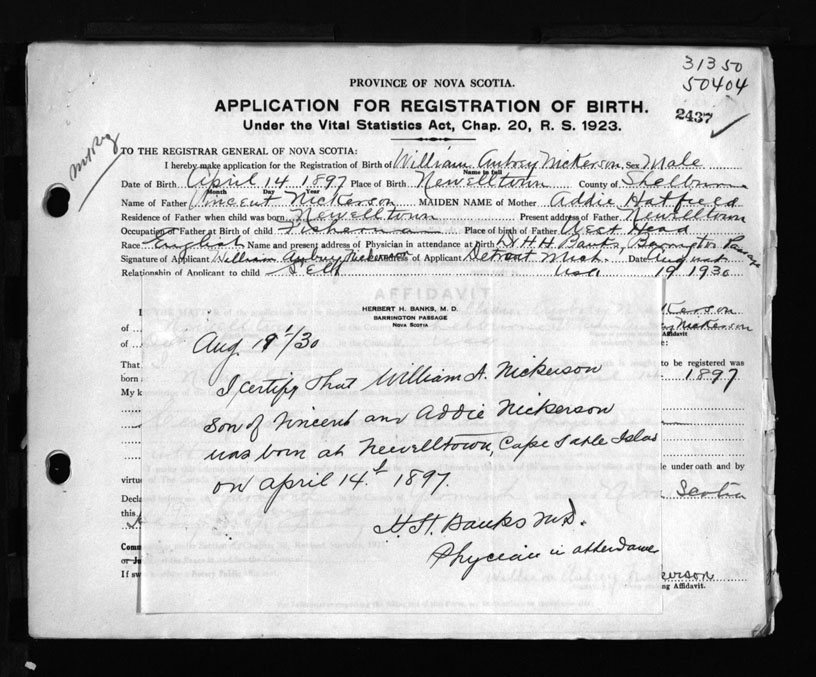 31350
50404
2437
PROVINCE OF NOVA SCOTIA.
APPLICATION FOR REGISTRATION OF BIRTH.
Under the Vital Statistics Act, Chap. 20, R. S. 1923.
TO THE REGISTRAR GENERAL OF NOVA SCOTIA:
I hereby make application for the Registration of Birth of William Aubrey Nickerson Sex Male
Name in full
Date of Birth April 14 1897 Place of Birth Newelltown County of Shelburne
Month Day Year
Name of Father Vincent Nickerson MAIDEN NAME of Mother Addie Hatfield
Residence of Father when child was born Newelltown Present address of Father Newelltown
Occupation of Father at Birth of child Fisherman Place of birth of Father West Head
Race English Name and present address of Physician in attendance at Birth Dr H. H. Banks, Barrington Passage
Signature of Applicant William Aubry Nickerson of Applicant Detroit Mich. Date August
Relationship of Applicant to child Self USA 19 1930
AFFIDAVIT
HERBERT H. BANKS, M. D.
BARRINGTON PASSAGE
NOVA SCOTIA
Aug 19/30
I certify that William A. Nickerson
Son of Vincent and Addie Nickerson
was born at Newelltown, Cape Sable Island
on April 14th 1897.
H. H. Banks M.D.
Physician in attendance
of
of
Nickerson
Affidavit
That
to be registered was
born
1897
My k
le under oath and by
virtue
Decla
Scotia
this
Comm
or Ju
If sw
erson
ng Affidavit.